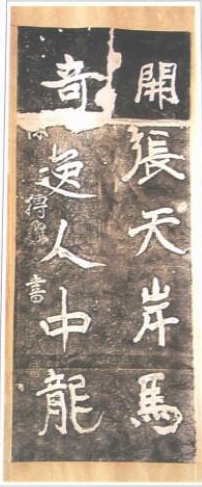 開張天岸馬
奇逸人中龍
陳摶 書